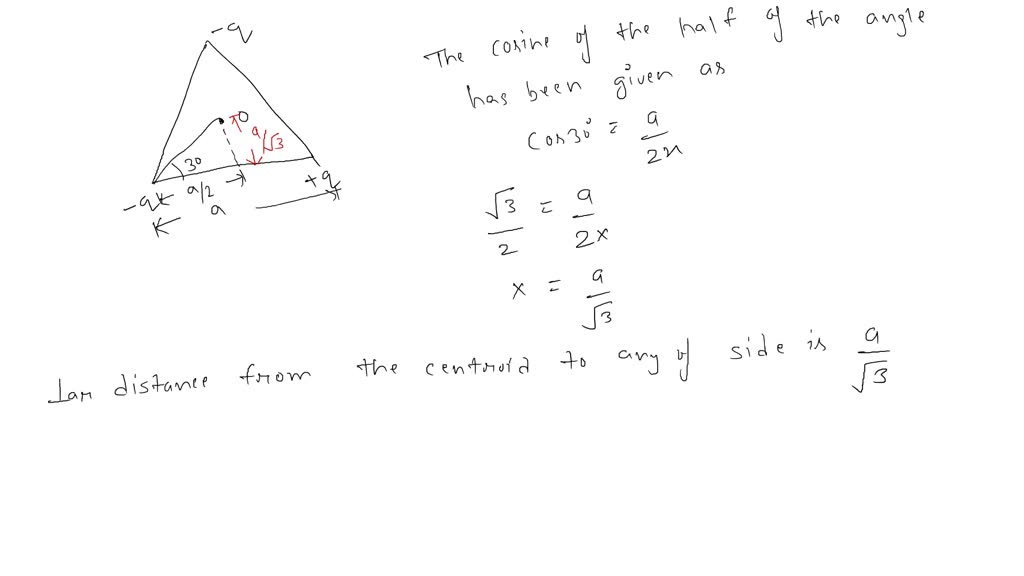 -q
O
a/√3
30
-q
a/2
+q
a
The cosine of the half of the angle
has been given as
cos30° = a/2x
√3/2 = a/2x
x = a/√3
⊥ar distance from the centroid to any of side is a/√3